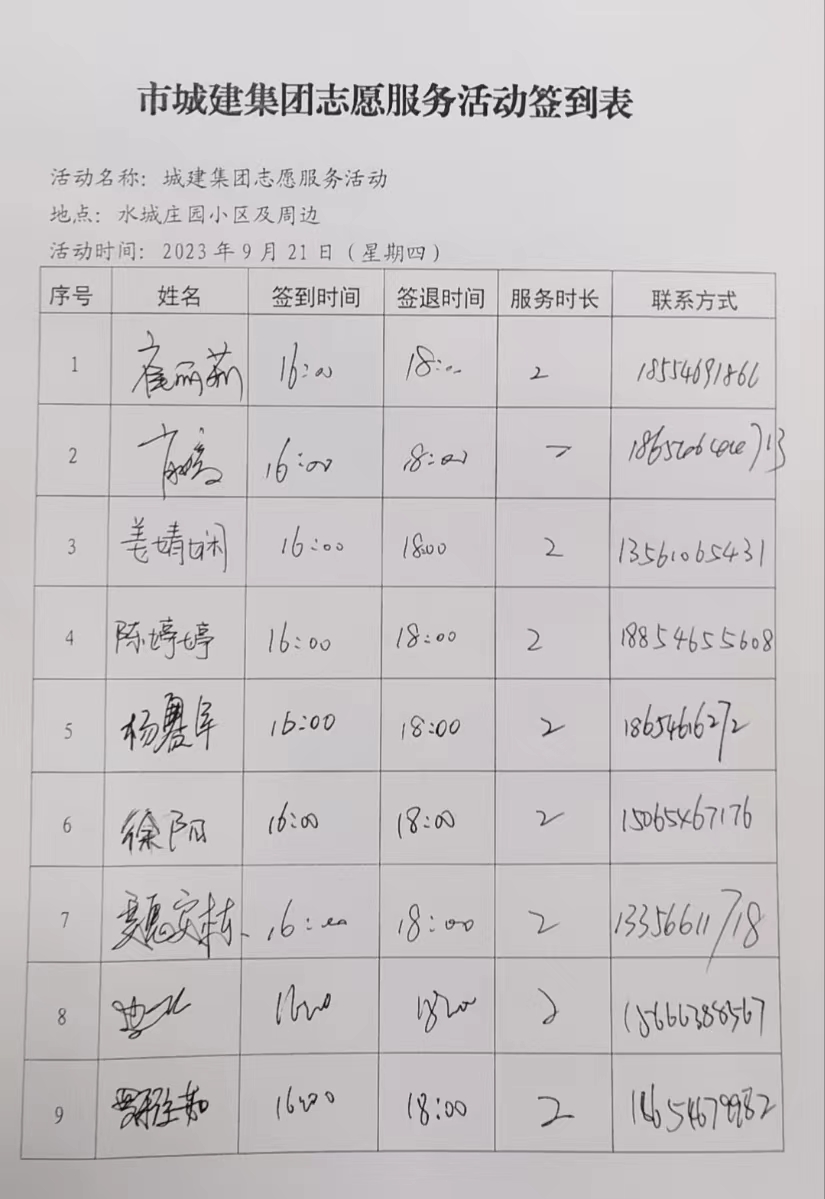 市城建集团志愿服务活动签到表
活动名称：城建集团志愿服务活动
地点：水城庄园小区及周边
活动时间：2023年9月21日（星期四）
序号 姓名 签到时间 签退时间 服务时长 联系方式
1 崔丽莉 16:00 18:00 2 18554691866
2 16:00 18:00 2
3 姜婧娴 16:00 18:00 2 13561065431
4 陈婷婷 16:00 18:00 2 18854655608
5 16:00 18:00 2 18654616272
6 徐阳 16:00 18:00 2 15065467176
7 16:00 18:00 2 13356611718
8 1600 1800 2 15666388567
9 16:00 18:00 2